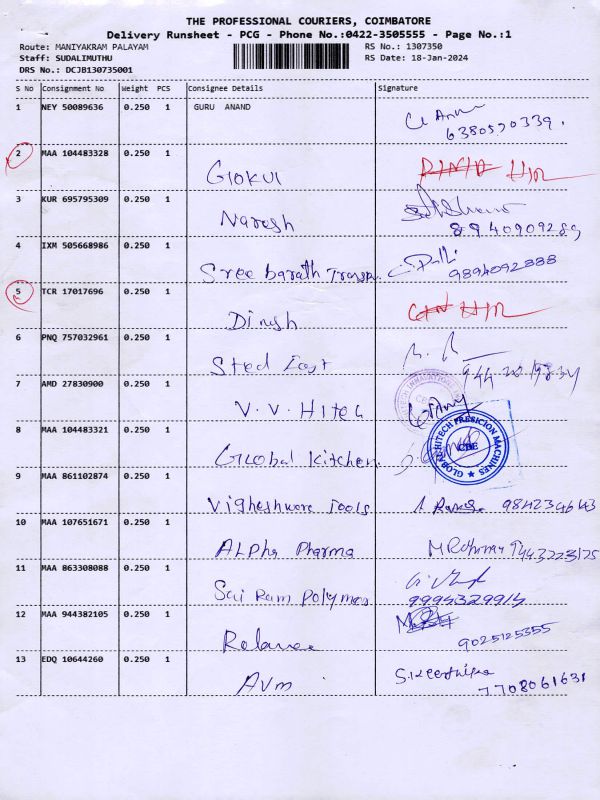 THE PROFESSIONAL COURIERS, COIMBATORE
Delivery Runsheet - PCG - Phone No.:0422-3505555 - Page No.:1
Route: MANIYAKRAM PALAYAM
RS No.: 1307350
Staff: SUDALIMUTHU
RS Date: 18-Jan-2024
DRS No.: DCJB130735001
S No Consignment No Weight PCS Consignee Details Signature
1 NEY 50089636 0.250 1 GURU ANAND
6380570339.
2 MAA 104483328 0.250 1
Gokul
3 KUR 695795309 0.250 1
Naresh 8940909289
4 IXM 505668986 0.250 1
Sree barath Transp. 9894092888
5 TCR 17017696 0.250 1
Dinesh
6 PNQ 757032961 0.250 1
Sted Fast
7 AMD 27830900 0.250 1
V.V. Hitec
8 MAA 104483321 0.250 1
Global Kitchen.
GLOBALHITECH PRESICION MACHINES ★ CBE
9 MAA 861102874 0.250 1
Vigheshware Tools 9842346143
10 MAA 107651671 0.250 1
Alpha Pharma 9443223125
11 MAA 863308088 0.250 1
Sai Ram Polymers 9994329914
12 MAA 944382105 0.250 1
9025125355
13 EDQ 10644260 0.250 1
AVM S.Keerthika
7708061631